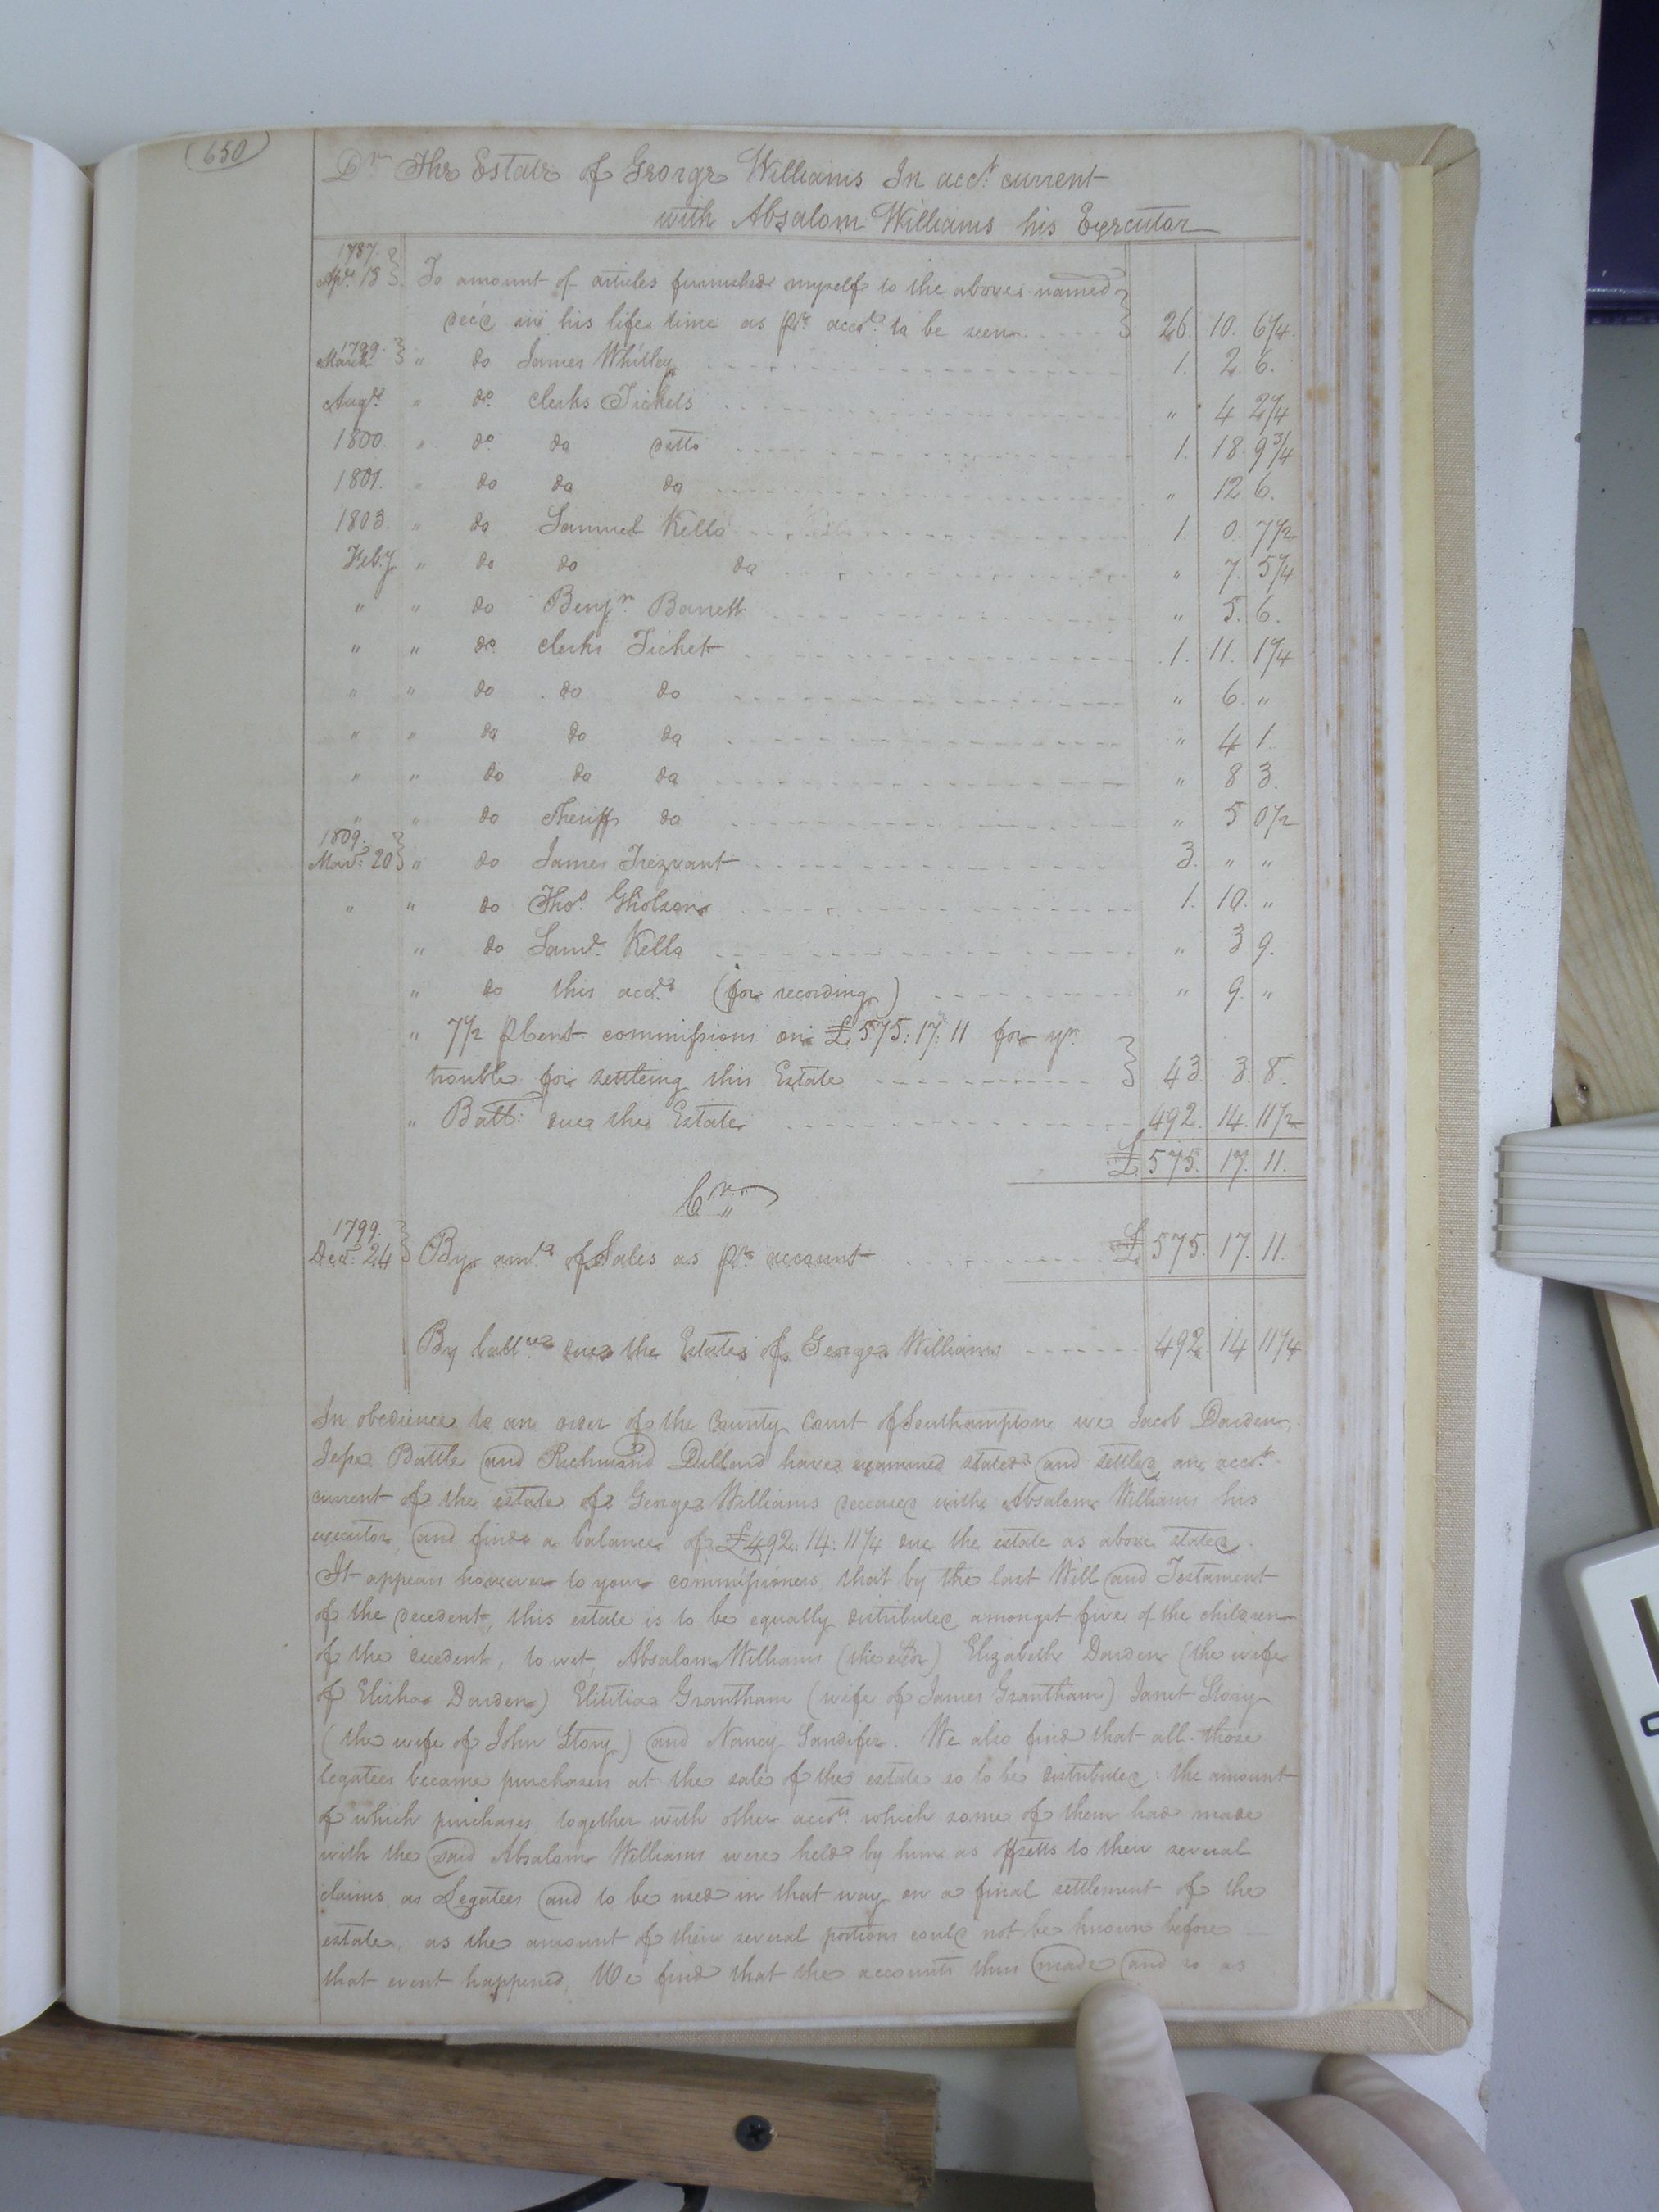 650
Dr The Estate of George Williams In acct. current
with Absalom Williams his Executor
1787.
Apl. 13 To amount of articles furnished myself to the above named
dec'd in his life time as pr. acct. to be seen 26. 10. 6 1/4.
1799.
March " do James Whitley 1. 2. 6.
Augt. " do. clerks Tickets " 4 2 1/4
1800. " do. do ditto 1. 18. 9 3/4
1801. " do do do " 12 6.
1803. " do Samuel Kello 1. 0. 7 1/2
Feby " do do do " 7. 5 1/4
" " do Benjn. Barrett " 5. 6.
" " do. clerks Ticket 1. 11. 1 1/4
" " do do do " 6. "
" " do do do " 4 1.
" " do do do " 8 3.
" " do Sheriffs do " 5 0 1/2
1809.
Mar: 20 " do James Trezvant 3. " "
" " do Thos. Gholson 1. 10. "
" do Saml. Kello " 3 9.
" do this acct. (for recording) " 9. "
" 7 1/2 pCent commissions on £575: 17: 11 for yr.
trouble for settleing this Estate 43. 3. 8.
" Ball: due the Estate 492. 14. 11 1/2
£ 575. 17. 11.
Cr.
1799.
Decr. 24 By amt. of Sales as pr. account £ 575. 17. 11.
By ballce due the Estate of George Williams 492. 14 11 1/4
In obedience to an order of the County Court of Southampton we Jacob Darden,
Jesse Battle and Richmond Dillard have examined stated and settled an acct.
current of the estate of George Williams deceased with Absalom Williams his
executor, and find a balance of £492. 14. 11 1/4 due the estate as above stated.
It appears however to your commissioners, that by the last Will and Testament
of the decedent, this estate is to be equally distributed amongst five of the children
of the decedent, to wit, Absalom Williams (the exor) Elizabeth Darden (the wife
of Elisha Darden) Elititia Grantham (wife of James Grantham) Janet Story
(the wife of John Story) and Nancy Sandifer. We also find that all those
legatees became purchasers at the sale of the estate so to be distributed: the amount
of which purchases together with other accts. which some of them had made
with the said Absalom Williams were held by him as offsetts to their several
claims as Legatees and to be used in that way on a final settlement of the
estate, as the amount of their several portions could not be known before
that event happened, We find that the accounts thus made and so as